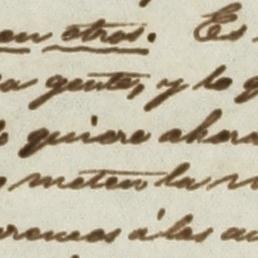 en otros. Es
a gente, y lo q
quiere ahora
meten la m
remos á las au